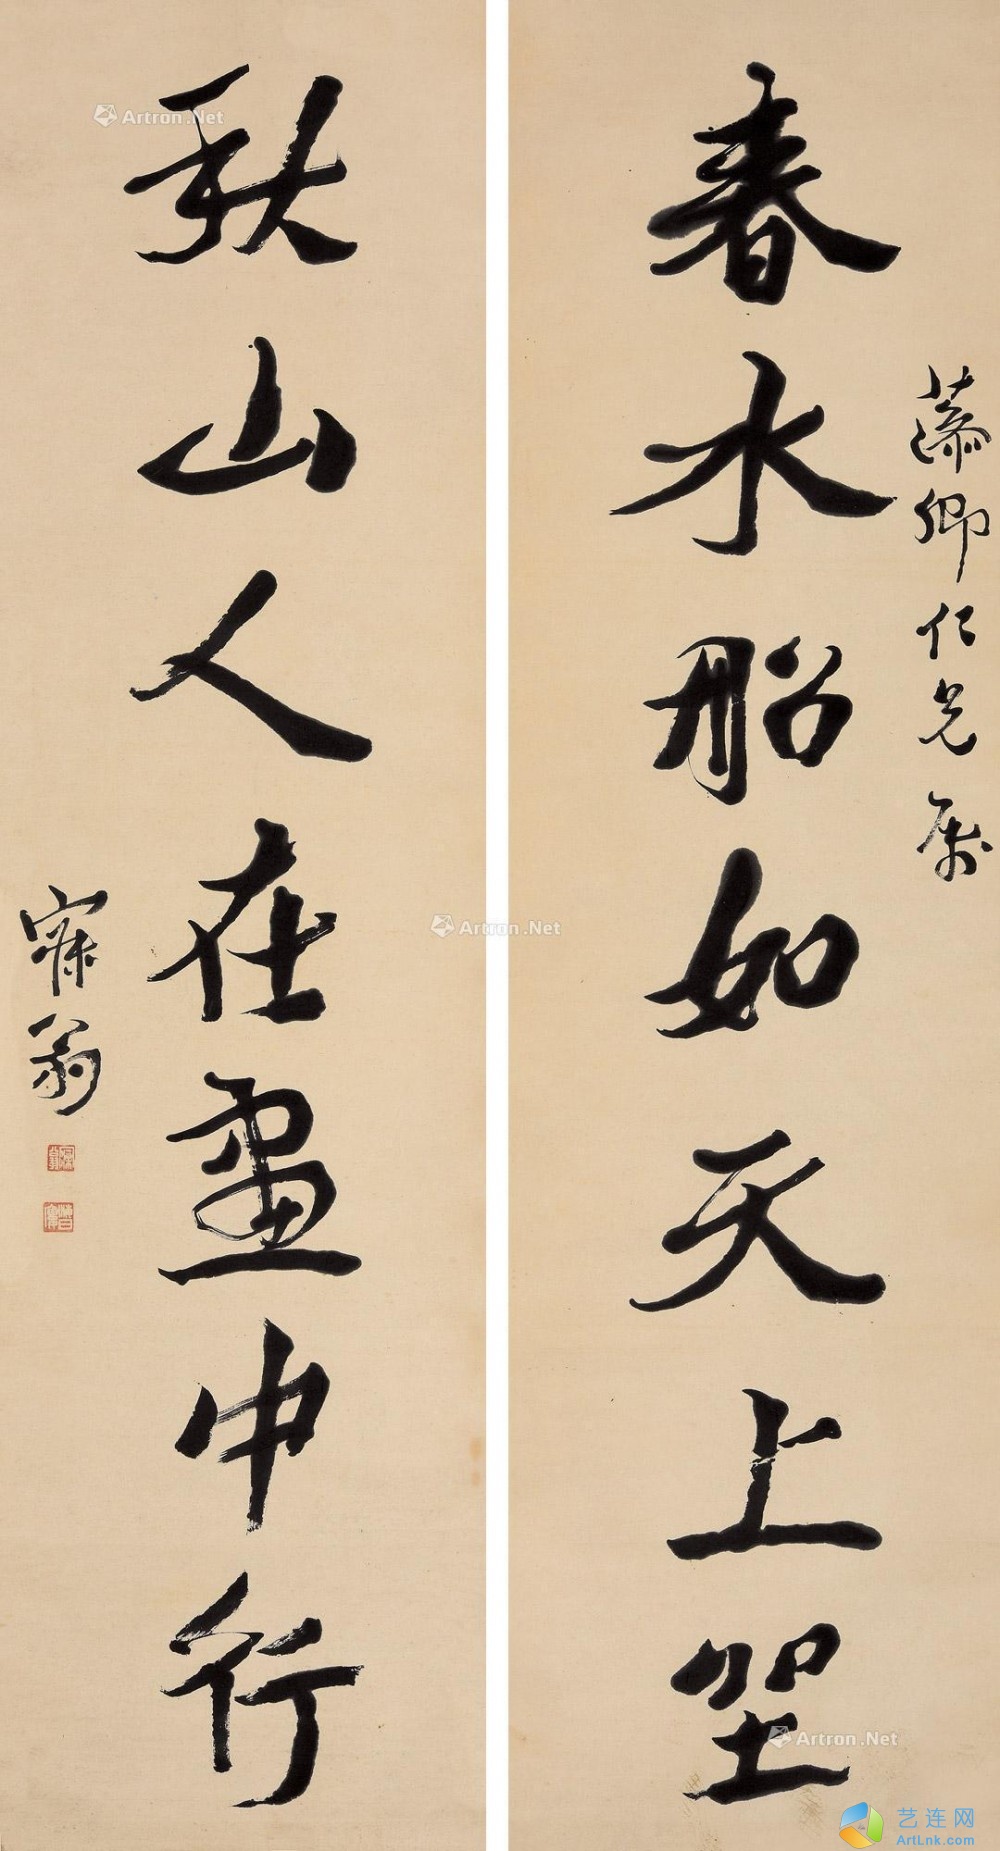 春水船如天上坐
蓀卿仁兄属
秋山人在畫中行
寐翁
Artron.Net
Artron.Net
Artron.Net
艺连网
ArtLnk.com